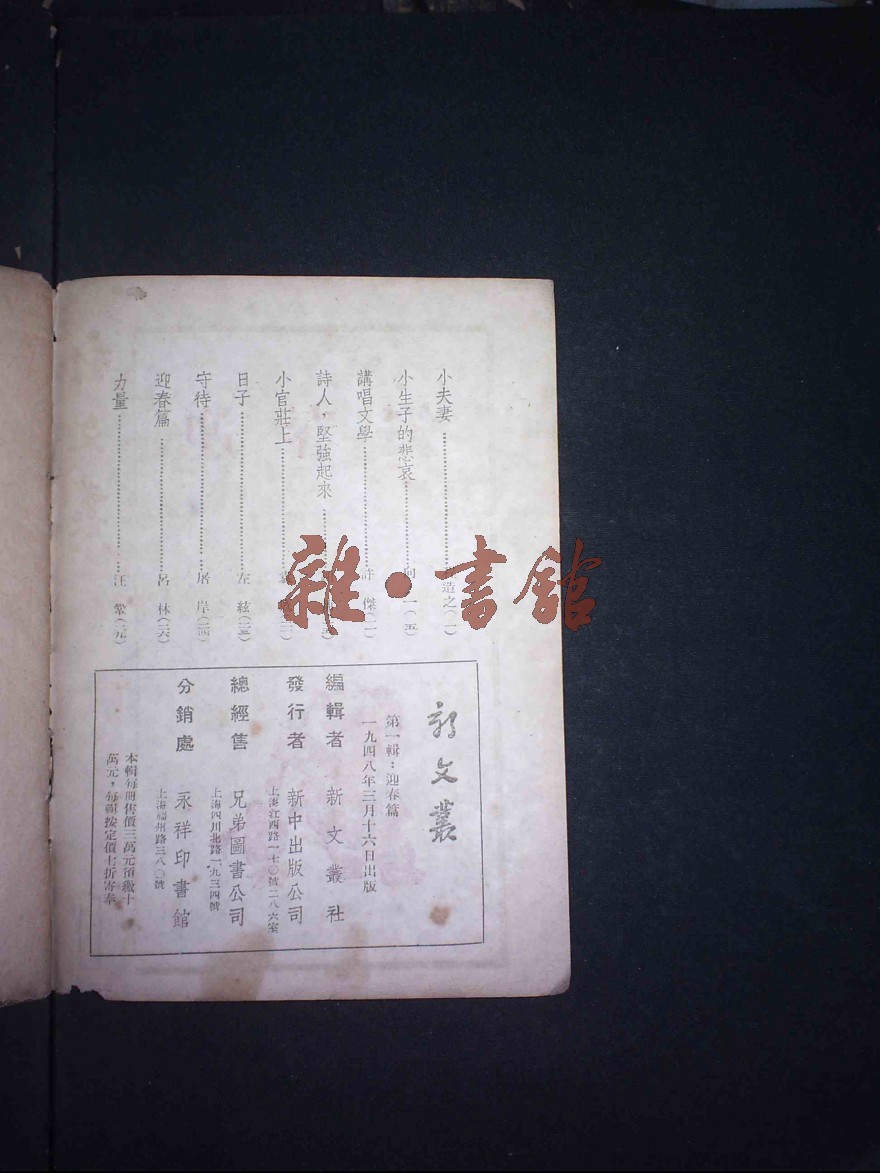 小夫妻……造之(一)
小生子的悲哀……(五)
講唱文學……許 傑(一一)
詩人，堅強起來……
小官莊上……
日子……左 絃(二三)
守待……屠 岸(二四)
迎春篇……呂 林(二六)
力量……汪 鞏(二九)
新文叢
第一輯：迎春篇
一九四八年三月十六日出版
編輯者 新文叢社
發行者 新中出版公司
上海江西路一七〇號二八六室
總經售 兄弟圖書公司
上海四川北路一九三四號
分銷處 永祥印書館
上海福州路三八〇號
本輯每册售價三萬元預繳十
萬元，每輯按定價七折寄奉
雜·書館